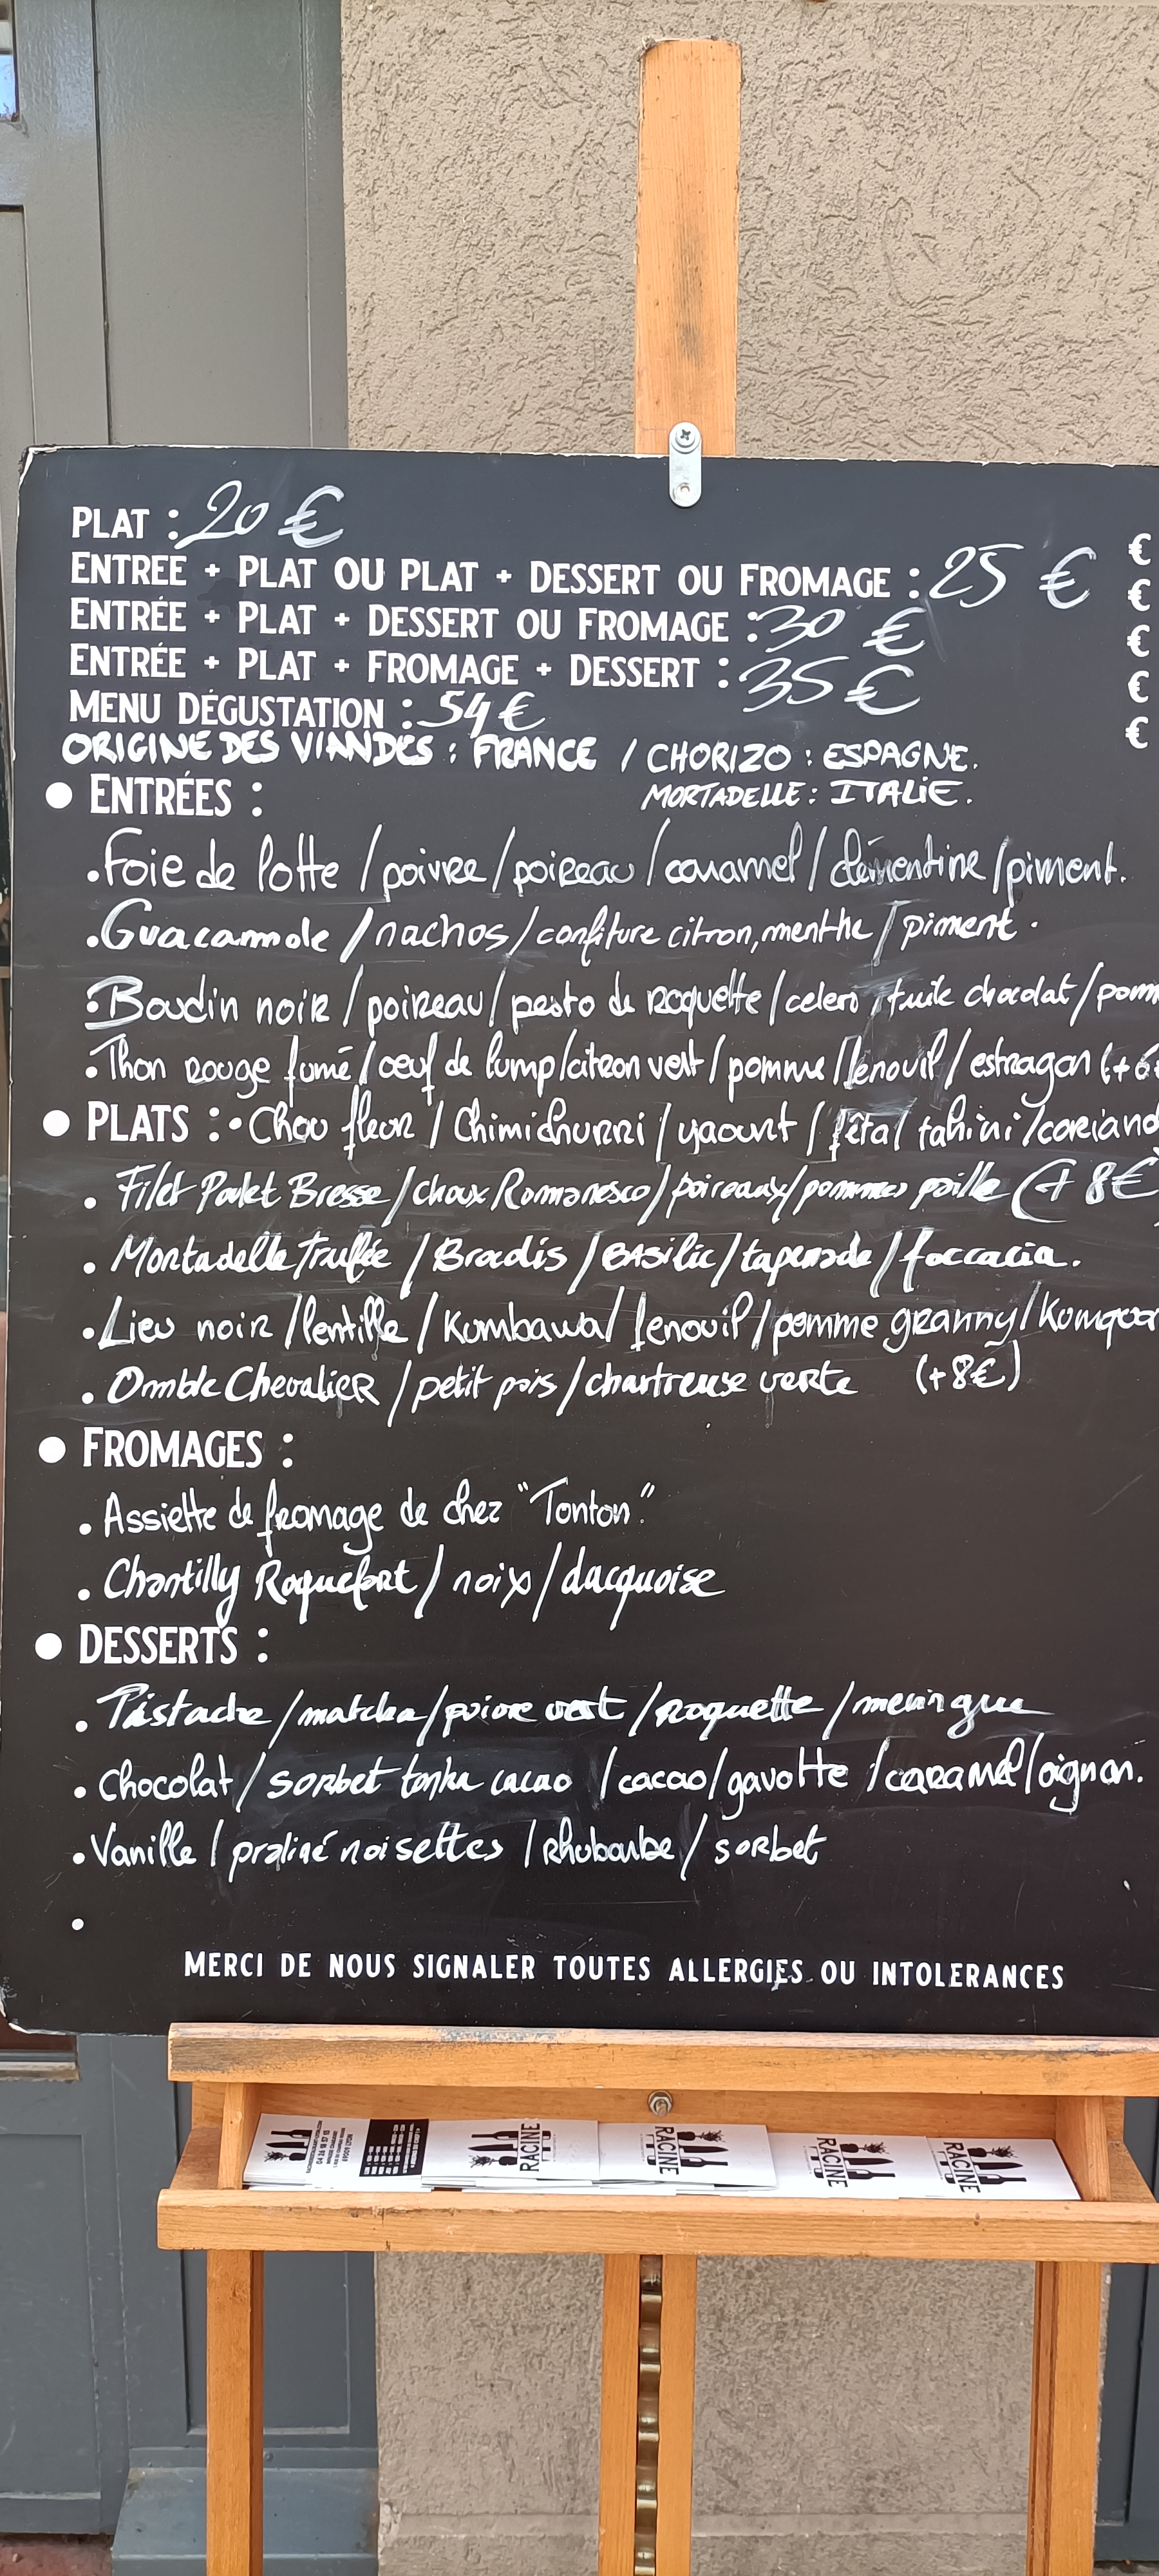 PLAT : 20 €
ENTREE + PLAT OU PLAT + DESSERT OU FROMAGE : 25 €
ENTRÉE + PLAT + DESSERT OU FROMAGE : 30 €
ENTRÉE + PLAT + FROMAGE + DESSERT : 35 €
MENU DÉGUSTATION : 54 €
€
€
€
€
€
ORIGINE DES VIANDES : FRANCE / CHORIZO : ESPAGNE.
MORTADELLE : ITALIE.
● ENTRÉES :
. Foie de lotte / poivre / poireau / caramel / clémentine / piment.
. Guacamole / nachos / confiture citron, menthe / piment .
. Boudin noir / poireau / pesto de roquette / celeri / tuile chocolat / pomm
. Thon rouge fumé / oeuf de lump / citron vert / pomme / fenouil / estragon (+6€
● PLATS : . Chou fleur / Chimichurri / yaourt / fêta / tahini / coriand
. Filet Poulet Bresse / choux Romanesco / poireaux / pommes paille (+ 8€)
. Mortadelle Truffée / Bradis / BASilic / tapenade / foccacia.
. Lieu noir / lentille / Kumbawa / fenouil / pomme granny / Kumqua
. Omble Chevalier / petit pois / chartreuse verte (+8€)
● FROMAGES :
. Assiette de fromage de chez "Tonton".
. Chantilly Roquefort / noix / dacquoise
● DESSERTS :
. Pistache / matcha / poivre vert / roquette / meringue
. Chocolat / sorbet tonka cacao / cacao / gavotte / caramel / oignon.
. Vanille / praliné noisettes / rhubarbe / sorbet
.
MERCI DE NOUS SIGNALER TOUTES ALLERGIES OU INTOLERANCES
RACINE
RACINE
RACINE
RACINE